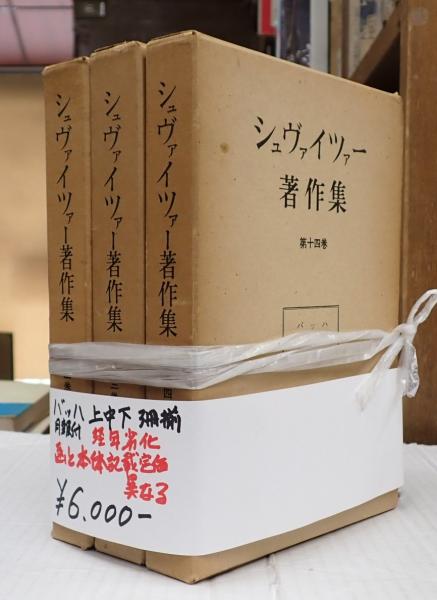 シュヴァイツァー著作集
シュヴァイツァー著作集
シュヴァイツァー著作集
シュヴァイツァー
著作集
第十四巻
バッハ
バッハ 上中下 3冊揃
月報付 経年劣化
函と本体記載定価
異なる
¥6,000-